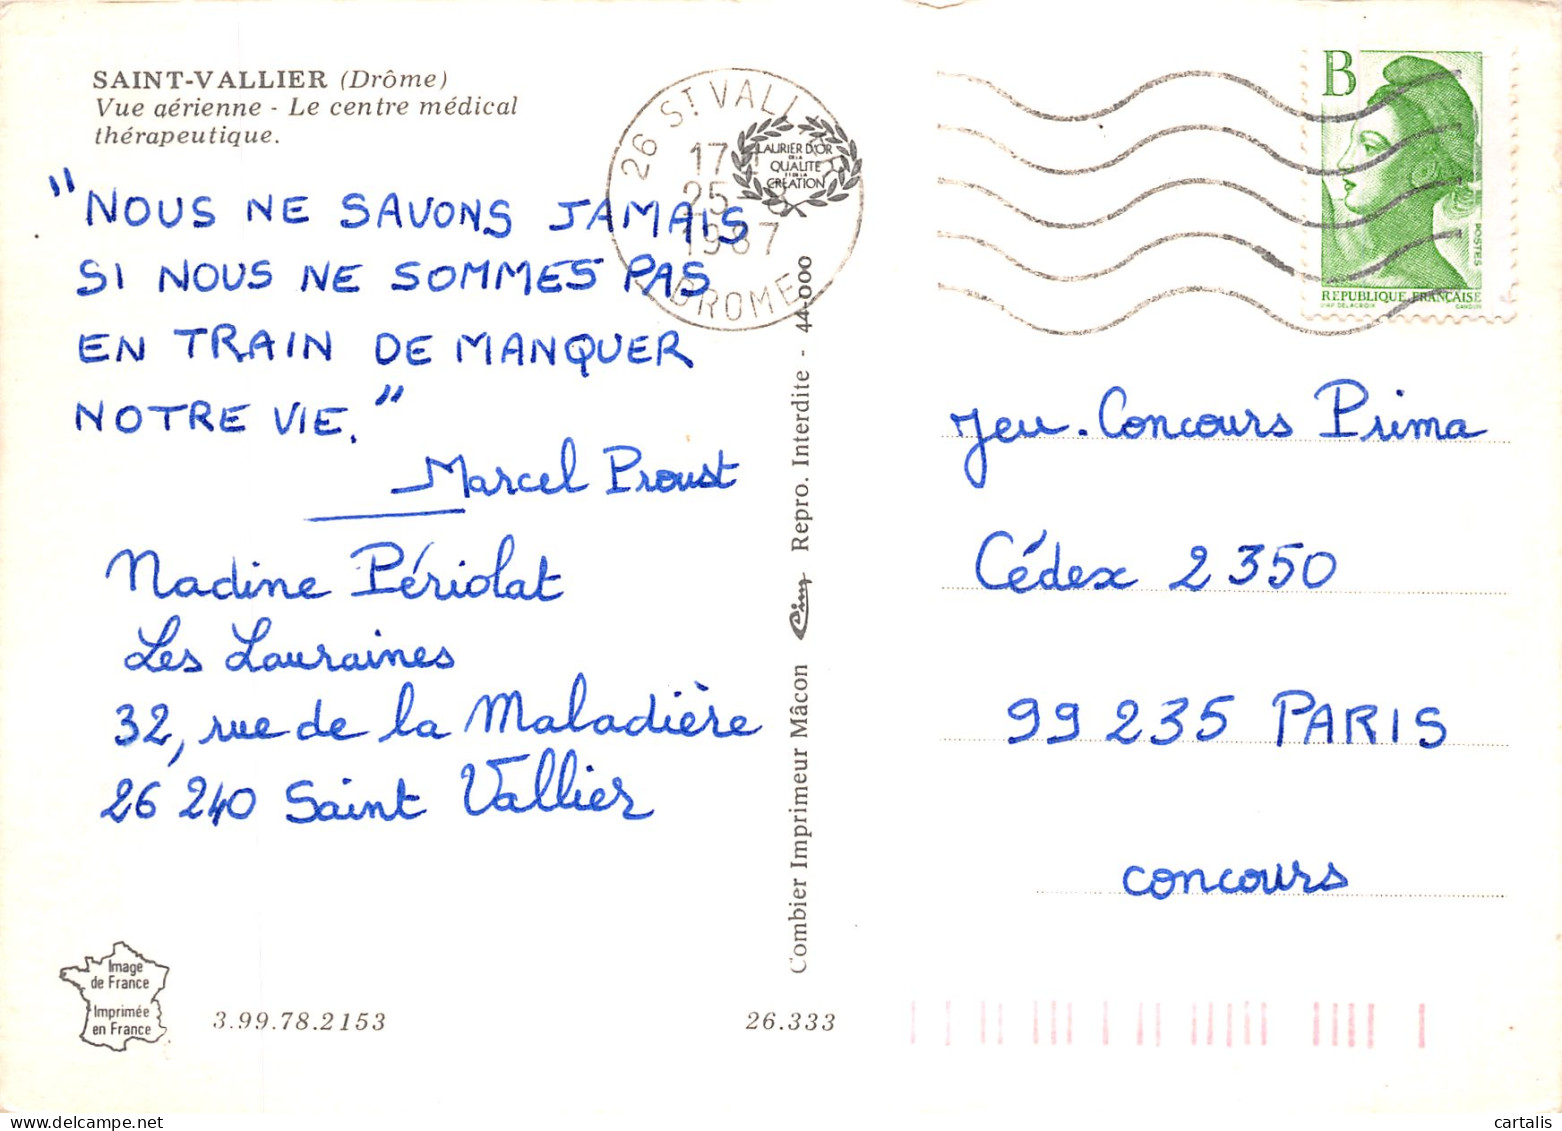 SAINT-VALLIER (Drôme)
Vue aérienne - Le centre médical
thérapeutique.
"NOUS NE SAVONS JAMAIS
SI NOUS NE SOMMES PAS
EN TRAIN DE MANQUER
NOTRE VIE."
Marcel Proust
Nadine Périolat
Les Lauraines
32, rue de la Maladière
26 240 Saint Vallier
Image
de France
Imprimée
en France
3.99.78.2153
26.333
26 ST VALLIER
17
25-8
1987
DROME
LAURIER D'OR
DE LA
QUALITE
ET DE LA
CREATION
Combier Imprimeur Mâcon Cim Repro. Interdite - 44-000
B
POSTES
REPUBLIQUE FRANÇAISE
D'AP DELACROIX GANDON
Jeu. Concours Prima
Cédex 2 350
99 235 PARIS
concours
cartalis